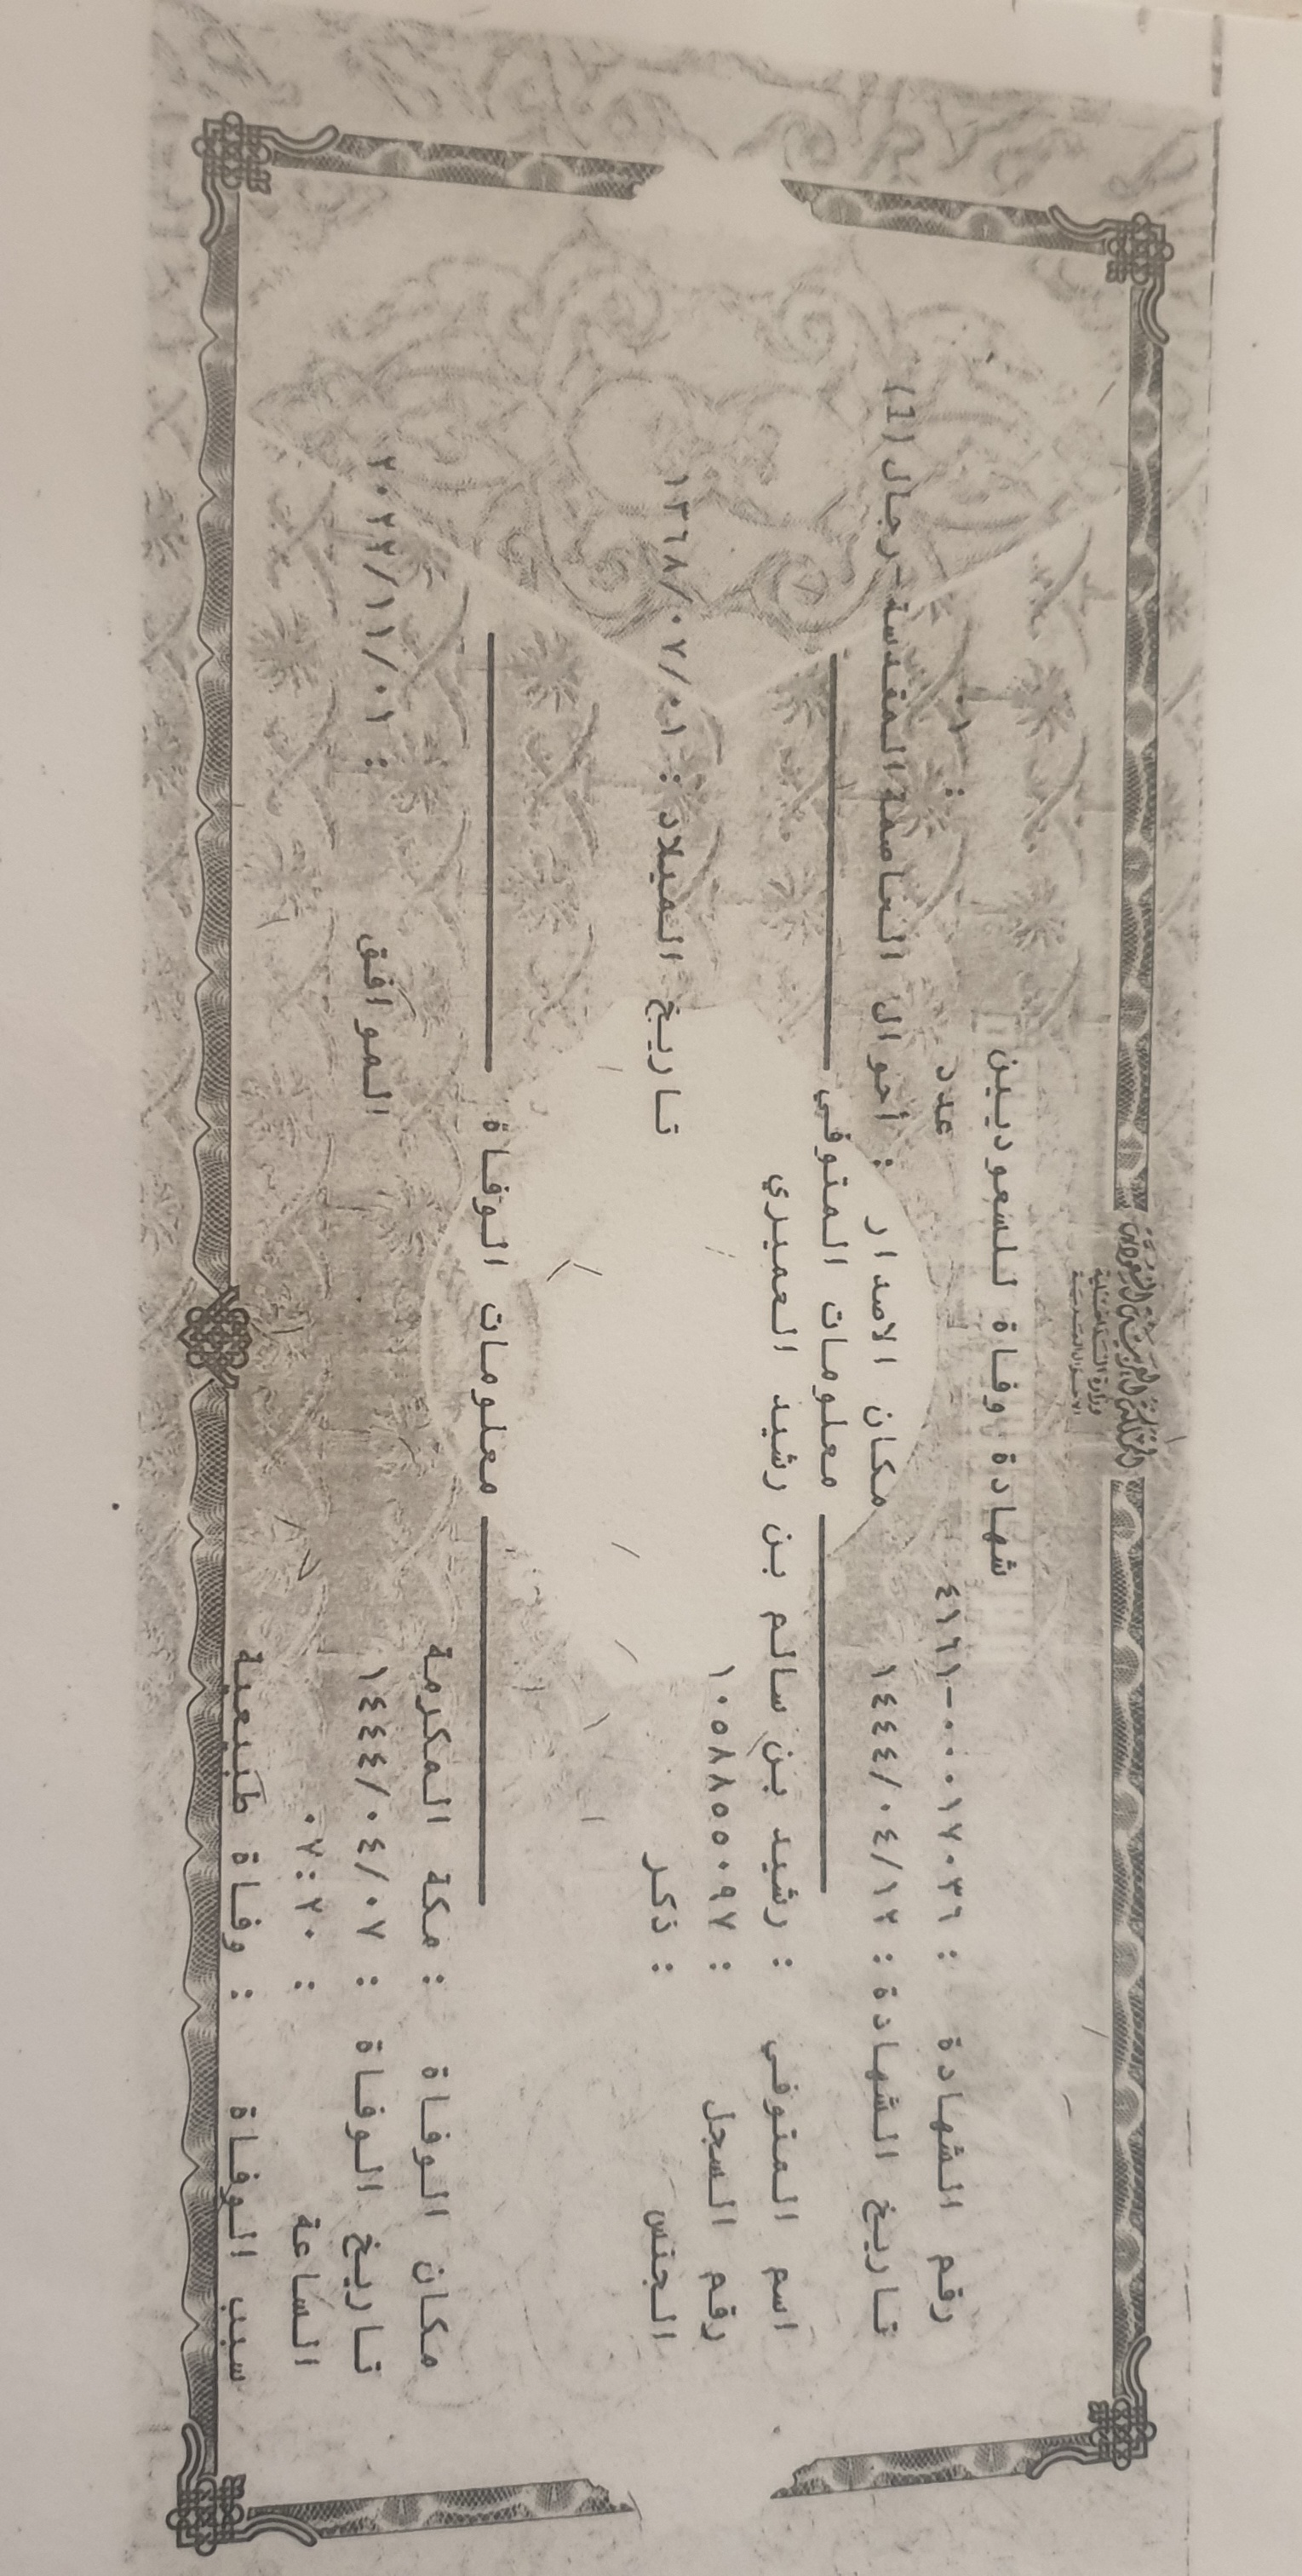 المملكة العربية السعودية
وزارة الداخلية
الأحوال المدنية
شهادة وفاة للسعوديين
رقم الشهادة : ٤١٦١-٠٠٠١٧٠٣٦ عدد : ٠١
تاريخ الشهادة : ١٤٤٤/٠٤/١٢ مكان الاصدار : أحوال العاصمة المقدسة-رجال(1)
معلومات المتوفي
اسم المتوفي : رشيد بن سالم بن رشيد العميري
رقم السجل : ١٠٥٨٨٥٥٠٩٧
الجنس : ذكر تاريخ الميلاد : ١٣٦٨/٠٧/٠١
معلومات الوفاة
مكان الوفاة : مكة المكرمة
تاريخ الوفاة : ١٤٤٤/٠٤/٠٧ الموافق : ٢٠٢٢/١١/٠١
الساعة : ٠٧:٢٠
سبب الوفاة : وفاة طبيعية